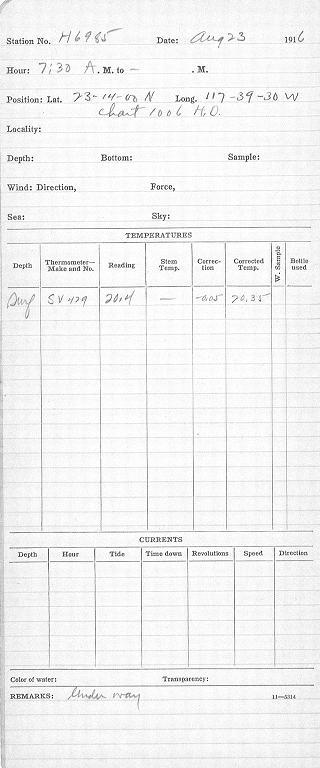 Station No. H6985 Date: Aug 23 1916
Hour: 7:30 A. M. to — . M.
Position: Lat. 23-14-00 N Long. 117-39-30 W
Chart 1006 H.O.
Locality:
Depth: Bottom: Sample:
Wind: Direction, Force,
Sea: Sky:
TEMPERATURES
Depth Thermometer—Make and No. Reading Stem Temp. Correc-tion Corrected Temp. W. Sample Bottle used
Surf SV 429 20.4 — -0.05 20.35
CURRENTS
Depth Hour Tide Time down Revolutions Speed Direction
Color of water: Transparency:
REMARKS: Under way 11—5314